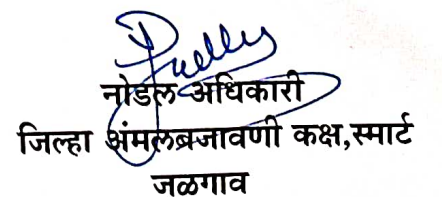 नोडल अधिकारी
जिल्हा अंमलबजावणी कक्ष,स्मार्ट
जळगाव